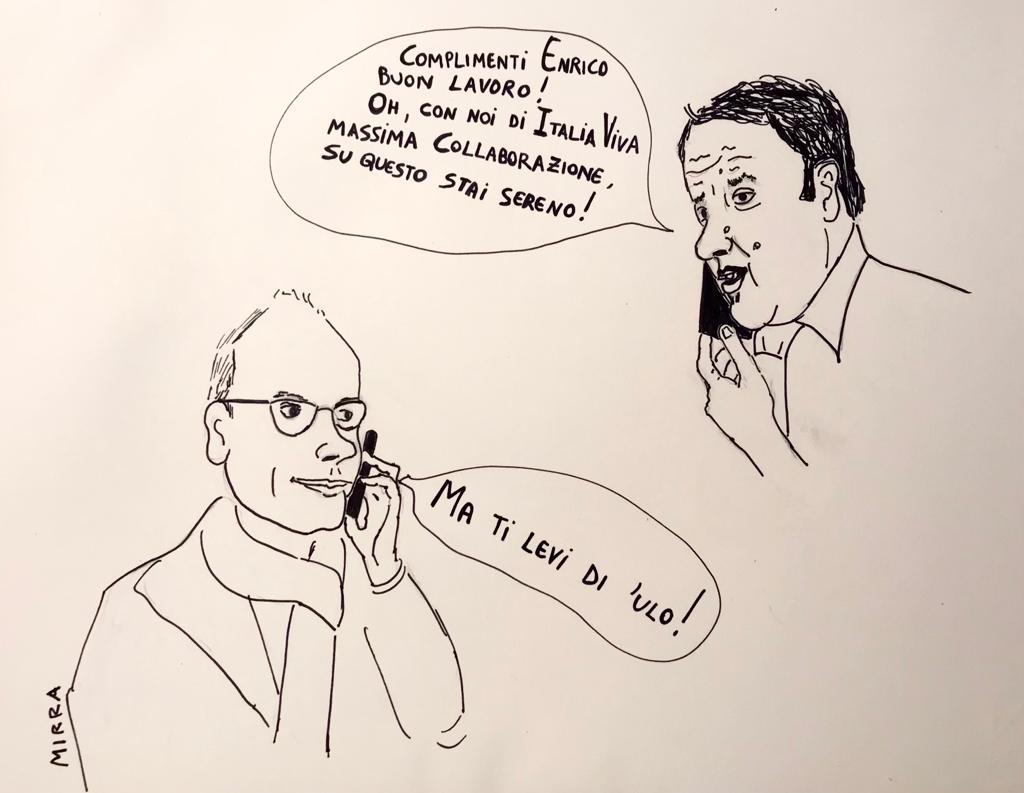 COMPLIMENTI ENRICO
BUON LAVORO!
OH, CON NOI DI ITALIA VIVA
MASSIMA COLLABORAZIONE,
SU QUESTO STAI SERENO!
MA TI LEVI DI 'ULO!
MIRRA